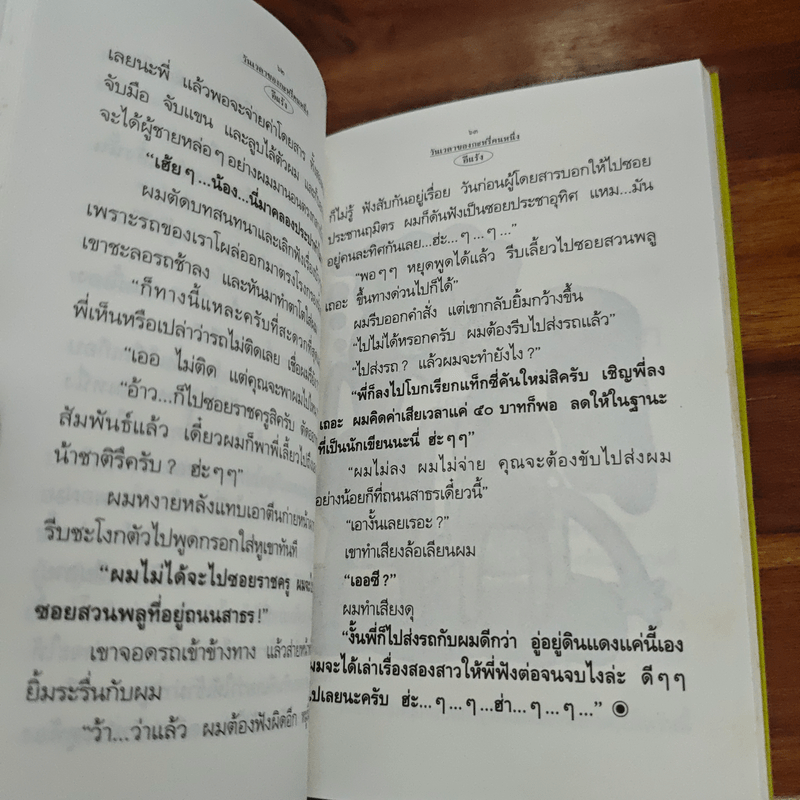 ๖๒
วันเวลาของกะหรี่คนหนึ่ง
อีแร้ง
เลยนะพี่ แล้วพอจะจ่ายค่าโดยสาร
จับมือ จับแขน และลูบไล้ตัวผม
จะได้ผู้ชายหล่อๆอย่างผมมานอน
“เฮ้ยๆ...น้อง...นี่มาคลองประปา
ผมตัดบทสนทนาและเลิกฟังเรื่อง
เพราะรถของเราโผล่ออกมาตรงโรงกรอง
เขาชะลอรถช้าลง และหันมาทำตาโตใส่ผม
“ก็ทางนี้แหละครับที่สะดวกที่สุด
พี่เห็นหรือเปล่าว่ารถไม่ติดเลย เชื่อผม
“เออ ไม่ติด แต่คุณจะพาผมไปไหน
“อ้าว...ก็ไปซอยราชครูสิครับ
สัมพันธ์แล้ว เดี๋ยวผมก็พาพี่เลี้ยวไป
น้าชาติรึครับ? ฮ่ะๆๆ”
ผมหงายหลังแทบเอาตีนก่ายหน้าผาก
รีบชะโงกตัวไปพูดกรอกใส่หูเขาทันที
“ผมไม่ได้จะไปซอยราชครู
ซอยสวนพลูที่อยู่ถนนสาธร!”
เขาจอดรถเข้าข้างทาง แล้วส่ายหน้า
ยิ้มระรื่นกับผม
“ว้า...ว่าแล้ว ผมต้องฟังผิดอีก
๖๓
วันเวลาของกะหรี่คนหนึ่ง
อีแร้ง
ก็ไม่รู้ ฟังสับกันอยู่เรื่อย วันก่อนผู้โดยสารบอกให้ไปซอย
ประชานฤมิตร ผมก็ดันฟังเป็นซอยประชาอุทิศ แหม...มัน
อยู่คนละทิศกันเลย...ฮ่ะ...ๆ...ๆ...”
“พอๆๆ หยุดพูดได้แล้ว รีบเลี้ยวไปซอยสวนพลู
เถอะ ขึ้นทางด่วนไปก็ได้”
ผมรีบออกคำสั่ง แต่เขากลับยิ้มกว้างขึ้น
“ไปไม่ได้หรอกครับ ผมต้องรีบไปส่งรถแล้ว”
“ไปส่งรถ? แล้วผมจะทำยังไง?”
“พี่ก็ลงไปโบกเรียกแท็กซี่คันใหม่สิครับ เชิญพี่ลง
เถอะ ผมคิดค่าเสียเวลาแค่ ๕๐ บาทก็พอ ลดให้ในฐานะ
ที่เป็นนักเขียนนะนี่ ฮ่ะๆๆ”
“ผมไม่ลง ผมไม่จ่าย คุณจะต้องขับไปส่งผม
อย่างน้อยก็ที่ถนนสาธรเดี๋ยวนี้”
“เอางั้นเลยเรอะ?”
เขาทำเสียงล้อเลียนผม
“เออซี?”
ผมทำเสียงดุ
“งั้นพี่ก็ไปส่งรถกับผมดีกว่า อู่อยู่ดินแดงแค่นี้เอง
ผมจะได้เล่าเรื่องสองสาวให้พี่ฟังต่อจนจบไงล่ะ ดีๆๆ
ไปเลยนะครับ ฮ่ะ...ๆ...ๆ...ฮ่า...ๆ...ๆ...”